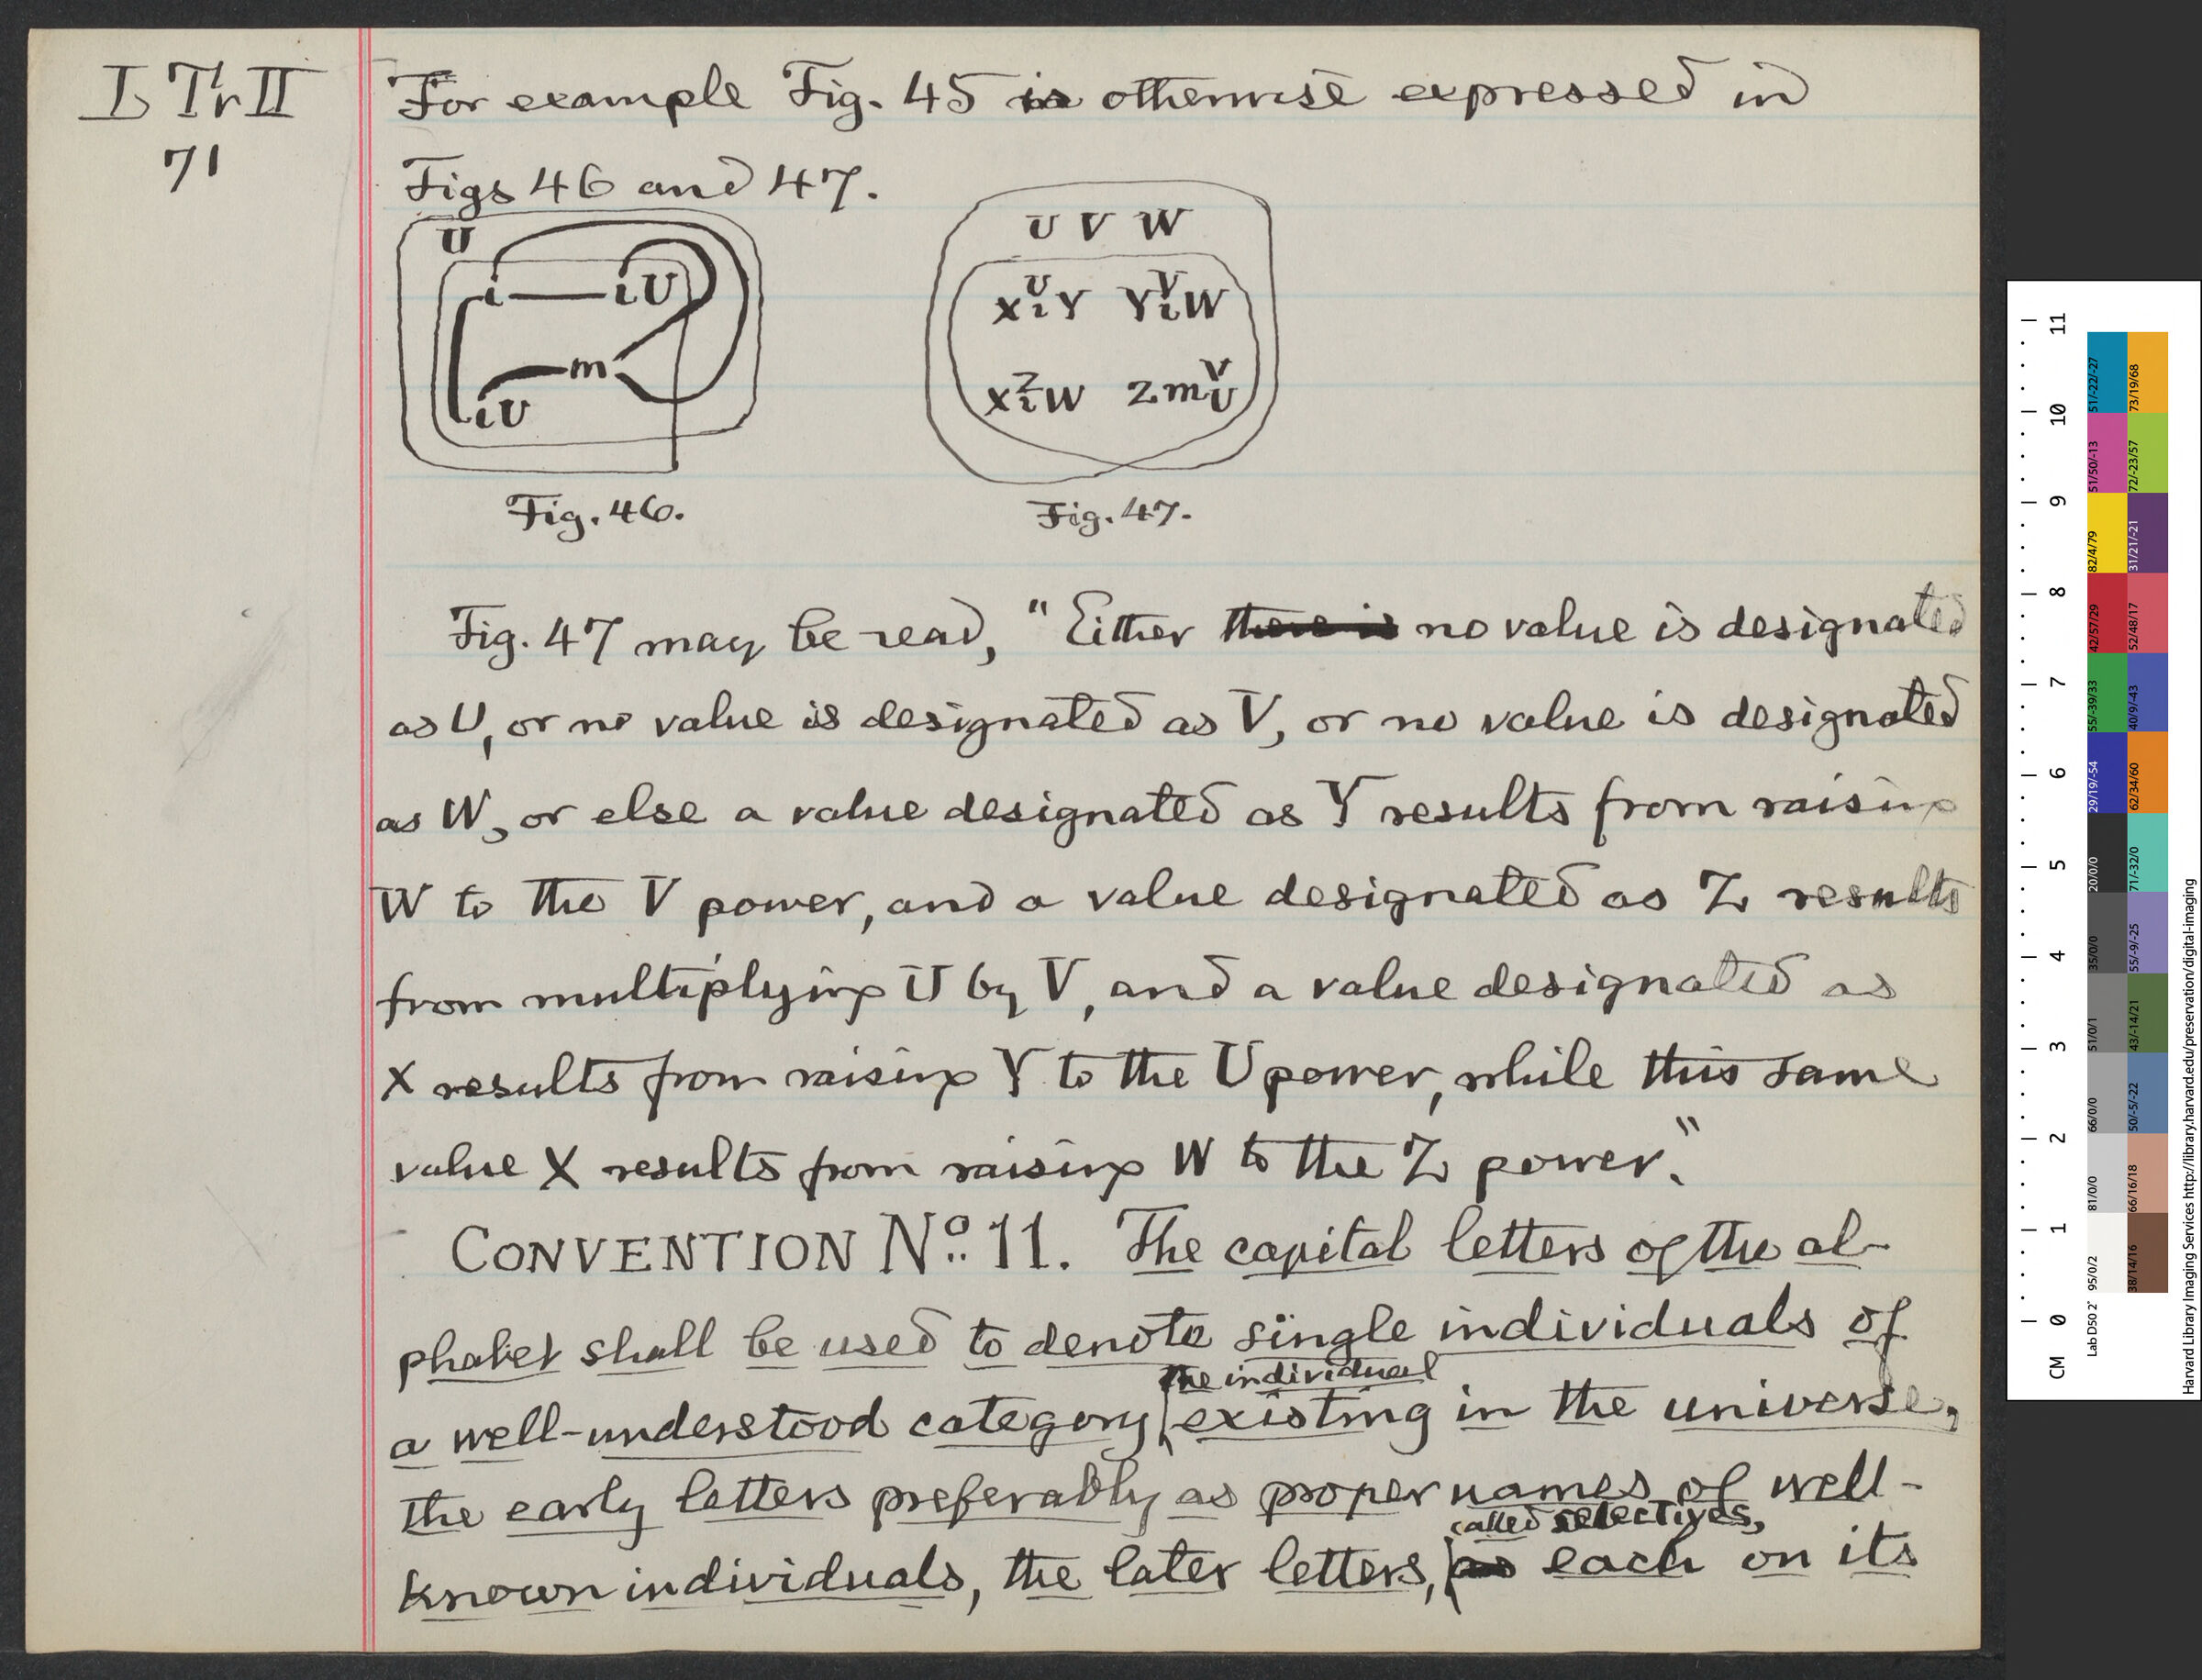 L Tr II
71
For example Fig. 45 is otherwise expressed in
Figs 46 and 47.
U
i iU
m
iU
Fig. 46.
U V W
X U i Y Y V i W
X Z i W Z m V U
Fig. 47.
Fig. 47 may be read, "Either there is no value is designated
as U, or no value is designated as V, or no value is designated
as W, or else a value designated as Y results from raising
W to the V power, and a value designated as Z results
from multiplying U by V, and a value designated as
X results from raising Y to the U power, while this same
value X results from raising W to the Z power."
CONVENTION No. 11. The capital letters of the al-
phabet shall be used to denote single individuals of
the individual
a well-understood category, existing in the universe,
the early letters preferably as proper names of well-
called selectives,
known individuals, the later letters, as each on its
CM 0 1 2 3 4 5 6 7 8 9 10 11
Lab D50 2°
95/0/2 81/0/0 66/0/0 51/0/1 35/0/0 20/0/0 29/19/-54 55/-39/33 42/57/29 82/4/79 51/50/-13 51/-22/-27
38/14/16 66/16/18 50/-5/-22 43/-14/21 55/-9/-25 71/-32/0 62/34/60 40/9/-43 52/48/17 31/21/-21 72/-23/57 73/19/68
Harvard Library Imaging Services http://library.harvard.edu/preservation/digital-imaging